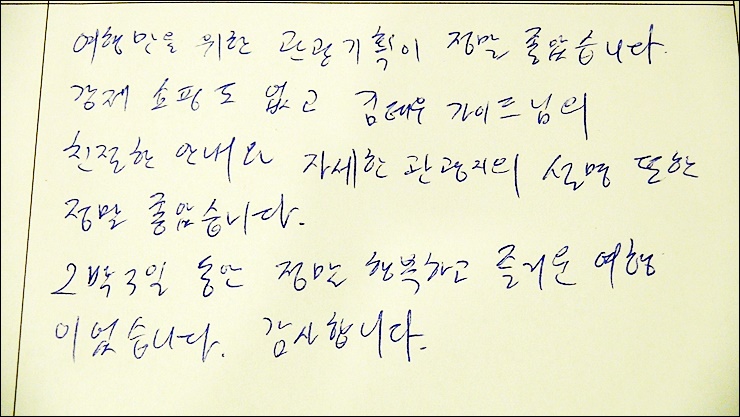 여행만을 위한 관광기획이 정말 좋았습니다.
강제 쇼핑도 없고 김태우 가이드님의
친절한 안내와 자세한 관광지의 설명 또한
정말 좋았습니다.
2박 3일 동안 정말 행복하고 즐거운 여행
이었습니다. 감사합니다.